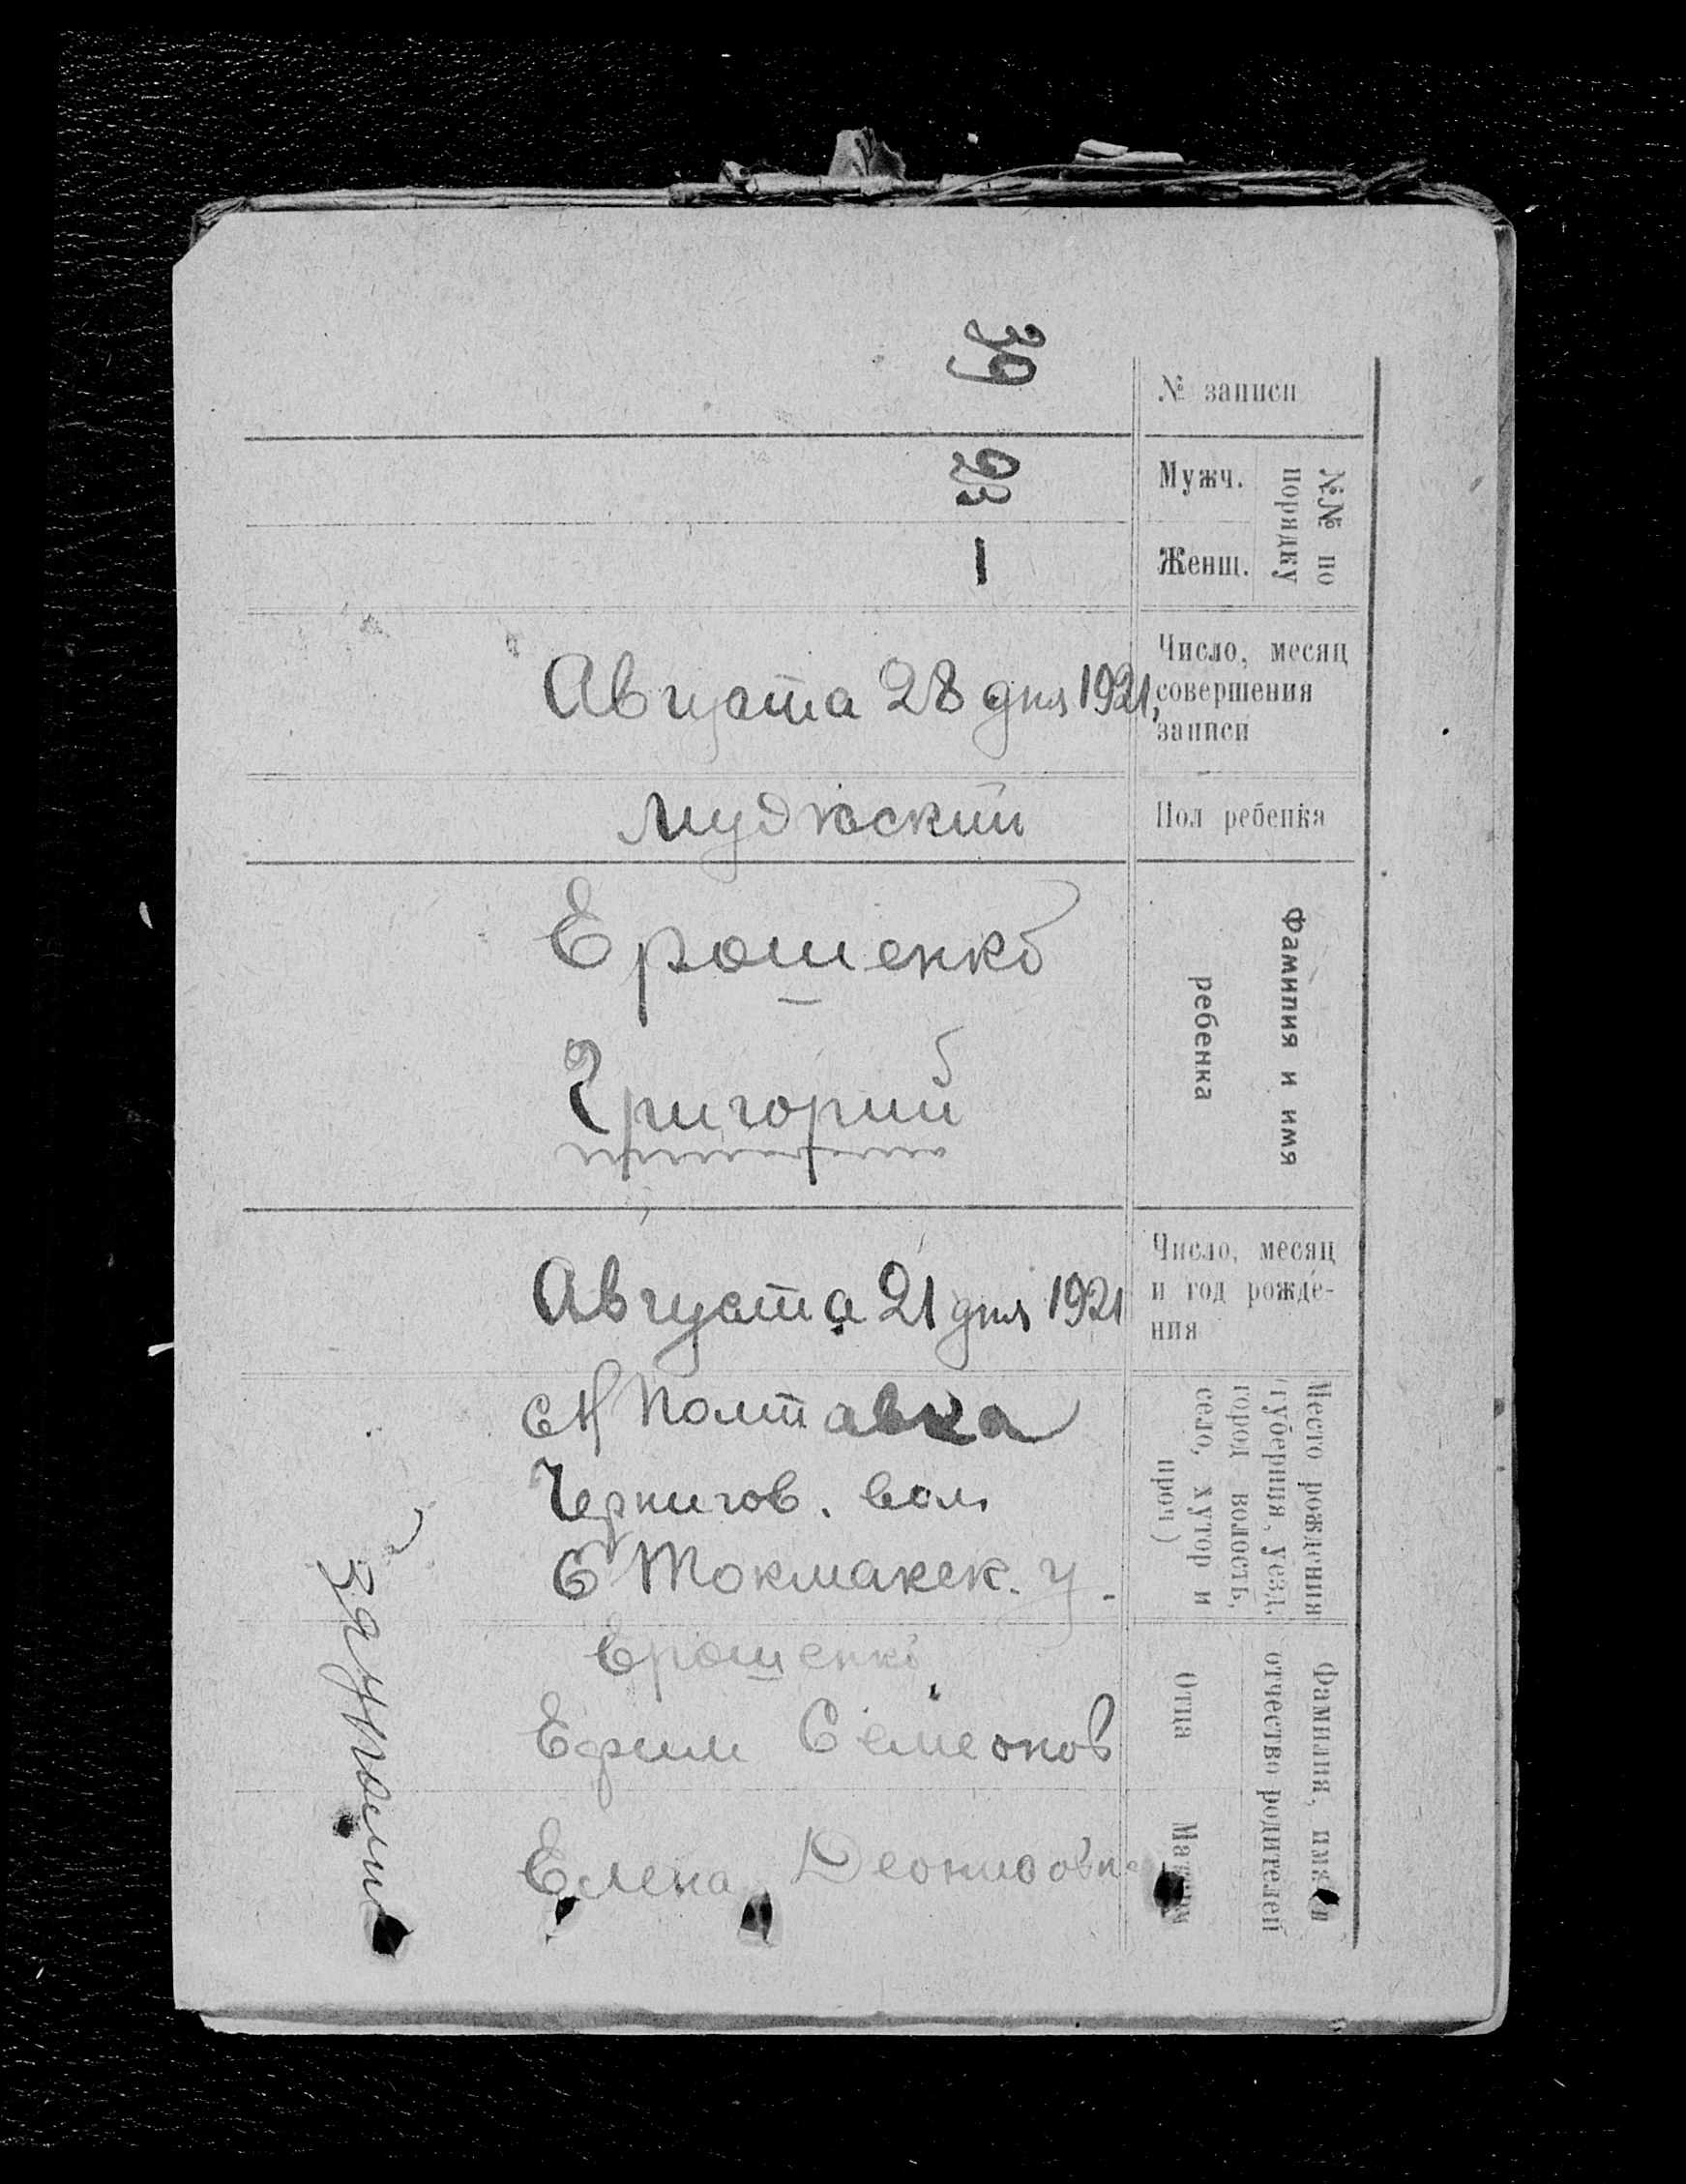 № записи
39
№№ по
порядку
Мужч.
23
Женщ.
—
Число, месяц
совершения
записи
Августа 28 дня 1921,
Пол ребенка
Мужюский
Фамилия и имя
ребенка
Ерошенко
Григорий
Число, месяц
и год рожде-
ния
Августа 21 дня 1921
Место рождения
(губерния, уезд,
город волость,
село, хутор и
проч)
с Н Полтавка
Чернигов. вол.
Б Токмакск. у.
Фамилия, имя и
отчество родителей
Отца
Ерошенко
Ефим Семеонов
Матери
Елена Леонидовн